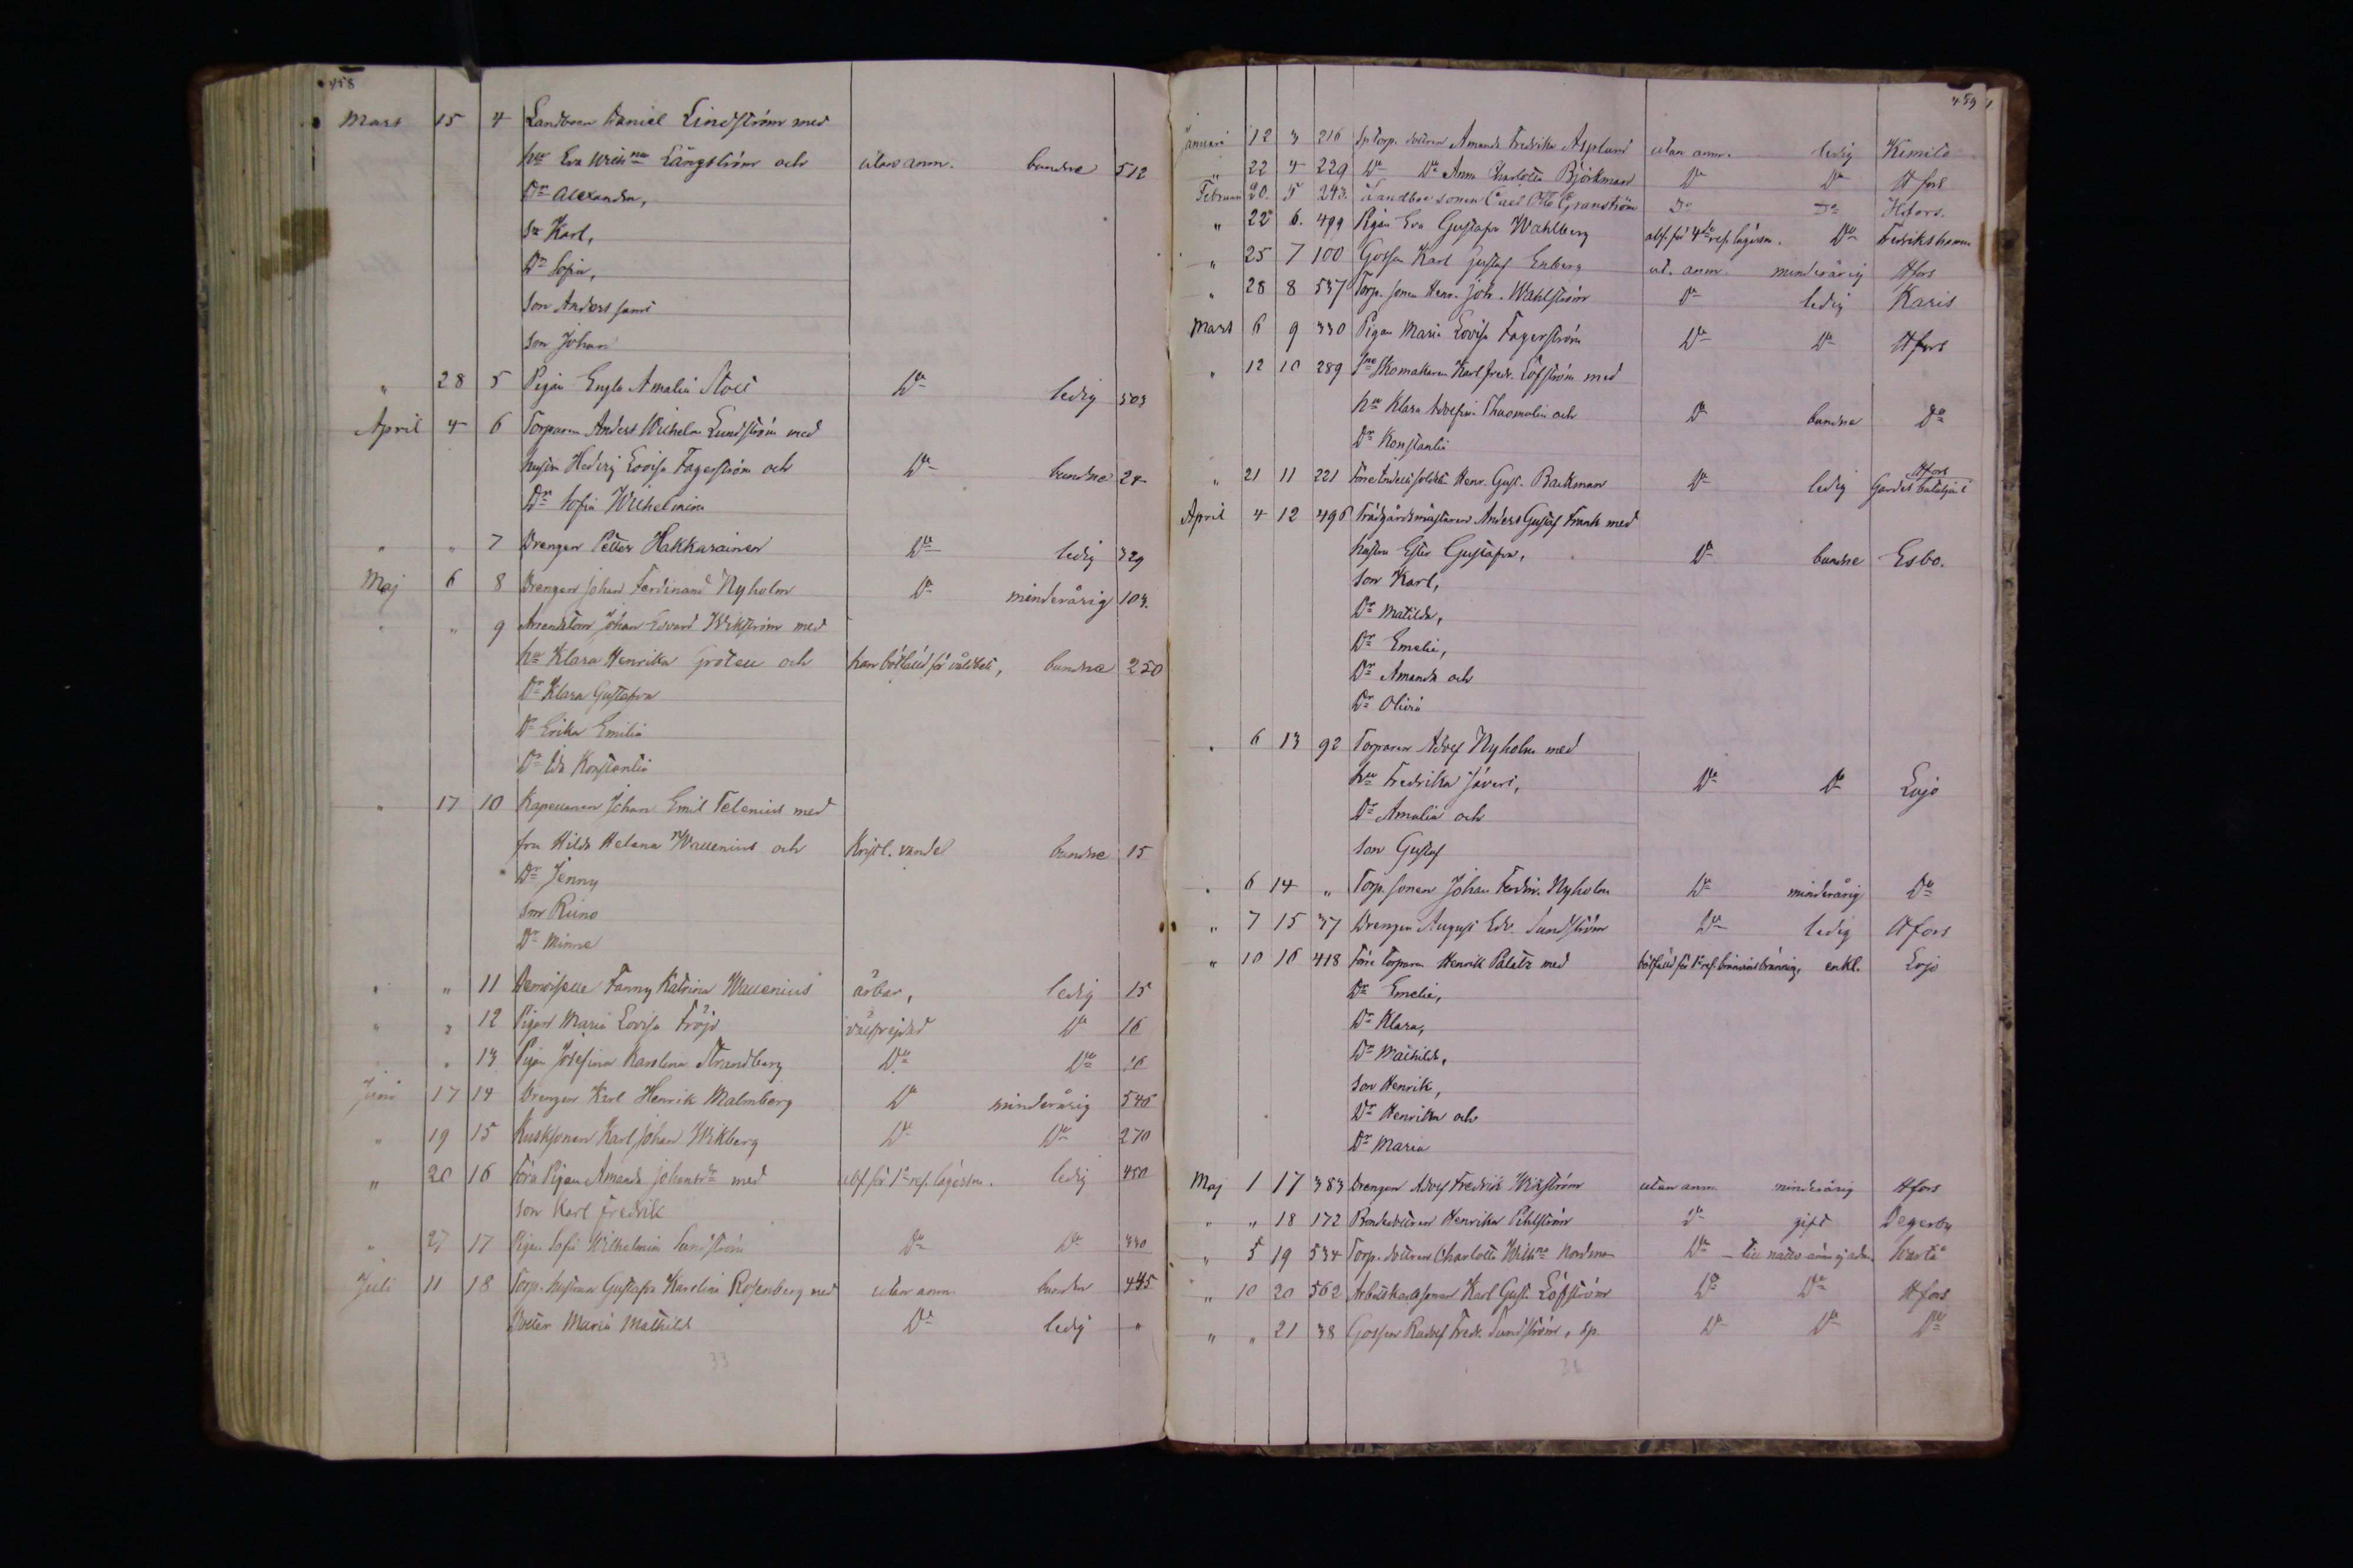 458
Mars 15 4 Landboen Daniel Lindström med
hu Eva Wilhna Långström och utan anm. bundne 512
Dr Alexandra,
Sn Karl,
Dr Sofia,
Son Anders samt
Son Johan
" 28 5 Pigan Engla Amalia Stoll Do ledig 303
April 4 6 Torparen Anders Wilhelm Lundström med
hustru Hedvig Lovisa Fagerström och Do bundne 24
Dr Sofia Wilhelmina
" " 7 Drengen Petter Hakkarainen Do ledig 329
Maj 6 8 Drengen Johan Ferdinand Nyholm Do minderårig 103.
" " 9 Arrendatorn Johan Edvard Wikström med
hu Klara Henrika Groten och han bötfälld för våldsl, bundne 250
Dr Klara Gustafva
Dr Erika Emilia
Dr Ida Konstantia
" 17 10 Kapellanen Johan Emil Telenius med
fru Hilda Helena Wallenius och Kristl. vandel bundne 15
Dr Jenny
Son Reino
Dr Minne
" " 11 Demoiselle Fanny Katrina Wallenius ärbar, ledig 15
" " 12 Pigan Maria Lovisa Fröjd välfrejdad Do 16
" " 13 Pigan Josefina Karolina Strandberg Do Do 16
Juni 17 14 Drengen Karl Henrik Malmberg Do minderårig 545
" 19 15 Kusksonen Karl Johan Wikberg Do Do 270
" 20 16 Förra Pigan Amanda Johansdr med abs. för 1a res. lägersm. ledig 450
Son Karl Fredrik
" 27 17 Pigan Sofia Wilhelmina Sundström Do Do 330
Juli 11 18 Torp. hustrun Gustafva Karolina Rosenberg med utan anm. bunden 445
Dotter Maria Mathilda Do ledig "
33
459
Januari 12 3 216 Sp Torp. dottren Amanda Fredrika Asplund utan anm. ledig Kimito
" 22 4 229 Do Do Anna Charlotta Björkman Do Do Hfors
Februari 20. 5 243. Landboesonen Carl Otto Granström Do Do Hfors.
" 22 6. 499 Pigan Eva Gustafva Wahlberg abs. för 4de res. lägersm. Do Fredrikshamn
" 25 7 100 Gossen Karl Gustaf Enberg ut. anm. minderårig Hfors
" 28 8 537 Torp. sonen Henr. Joh. Wahlström Do ledig Karis
Mars 6 9 330 Pigan Maria Lovisa Fagerström Do Do Hfors
" 12 10 289 Skomakaren Karl Fredr. Löfström med
hu Klara Adolfina Thuomolin och Do bundne Do
Dr Konstantia
" 21 11 221 Förre Indelt soldaten Henr. Gust. Backman Do ledig Hfors Gardes bataljon
April 4 12 496 Trädgårdsmästaren Anders Gustaf Frank med
hustru Ester Gustafva, Do bundne Esbo.
Son Karl,
Dr Matilda,
Dr Emelie,
Dr Amanda och
Dr Olivia
" 6 13 92 Torparen Adolf Nyholm med
hu Fredrika Jäveri, Do Do Lojo
Dr Amalia och
Son Gustaf
" 6 14 " Torp. sonen Johan Ferdin. Nyholm Do minderårig Do
" 7 15 37 Drengen August Edv. Sundström Do ledig Hfors
" 10 16 418 Förre Torparen Henrik Palatz med bötfälld för 1a res. bränvinsbränning, enkl. Lojo
Dr Emelie,
Dr Klara,
Dr Mathilda,
Son Henrik,
Dr Henrika och
Dr Maria
Maj 1 17 383 Drengen Adolf Fredrik Wikström utan anm. minderårig Hfors
" " 18 172 Bondedottren Henrika Pihlström Do gift Degerby
" 5 19 534 Torp. dottren Charlotta Wilhna Nordman Do till nattv. ännu ej adm.
" 10 20 562 Arbetskarlssonen Karl Gust. Löfström Do Do Hfors
" " 21 38 Gossen Rudolf Fredr. Sundström, sp. Do Do Do
36